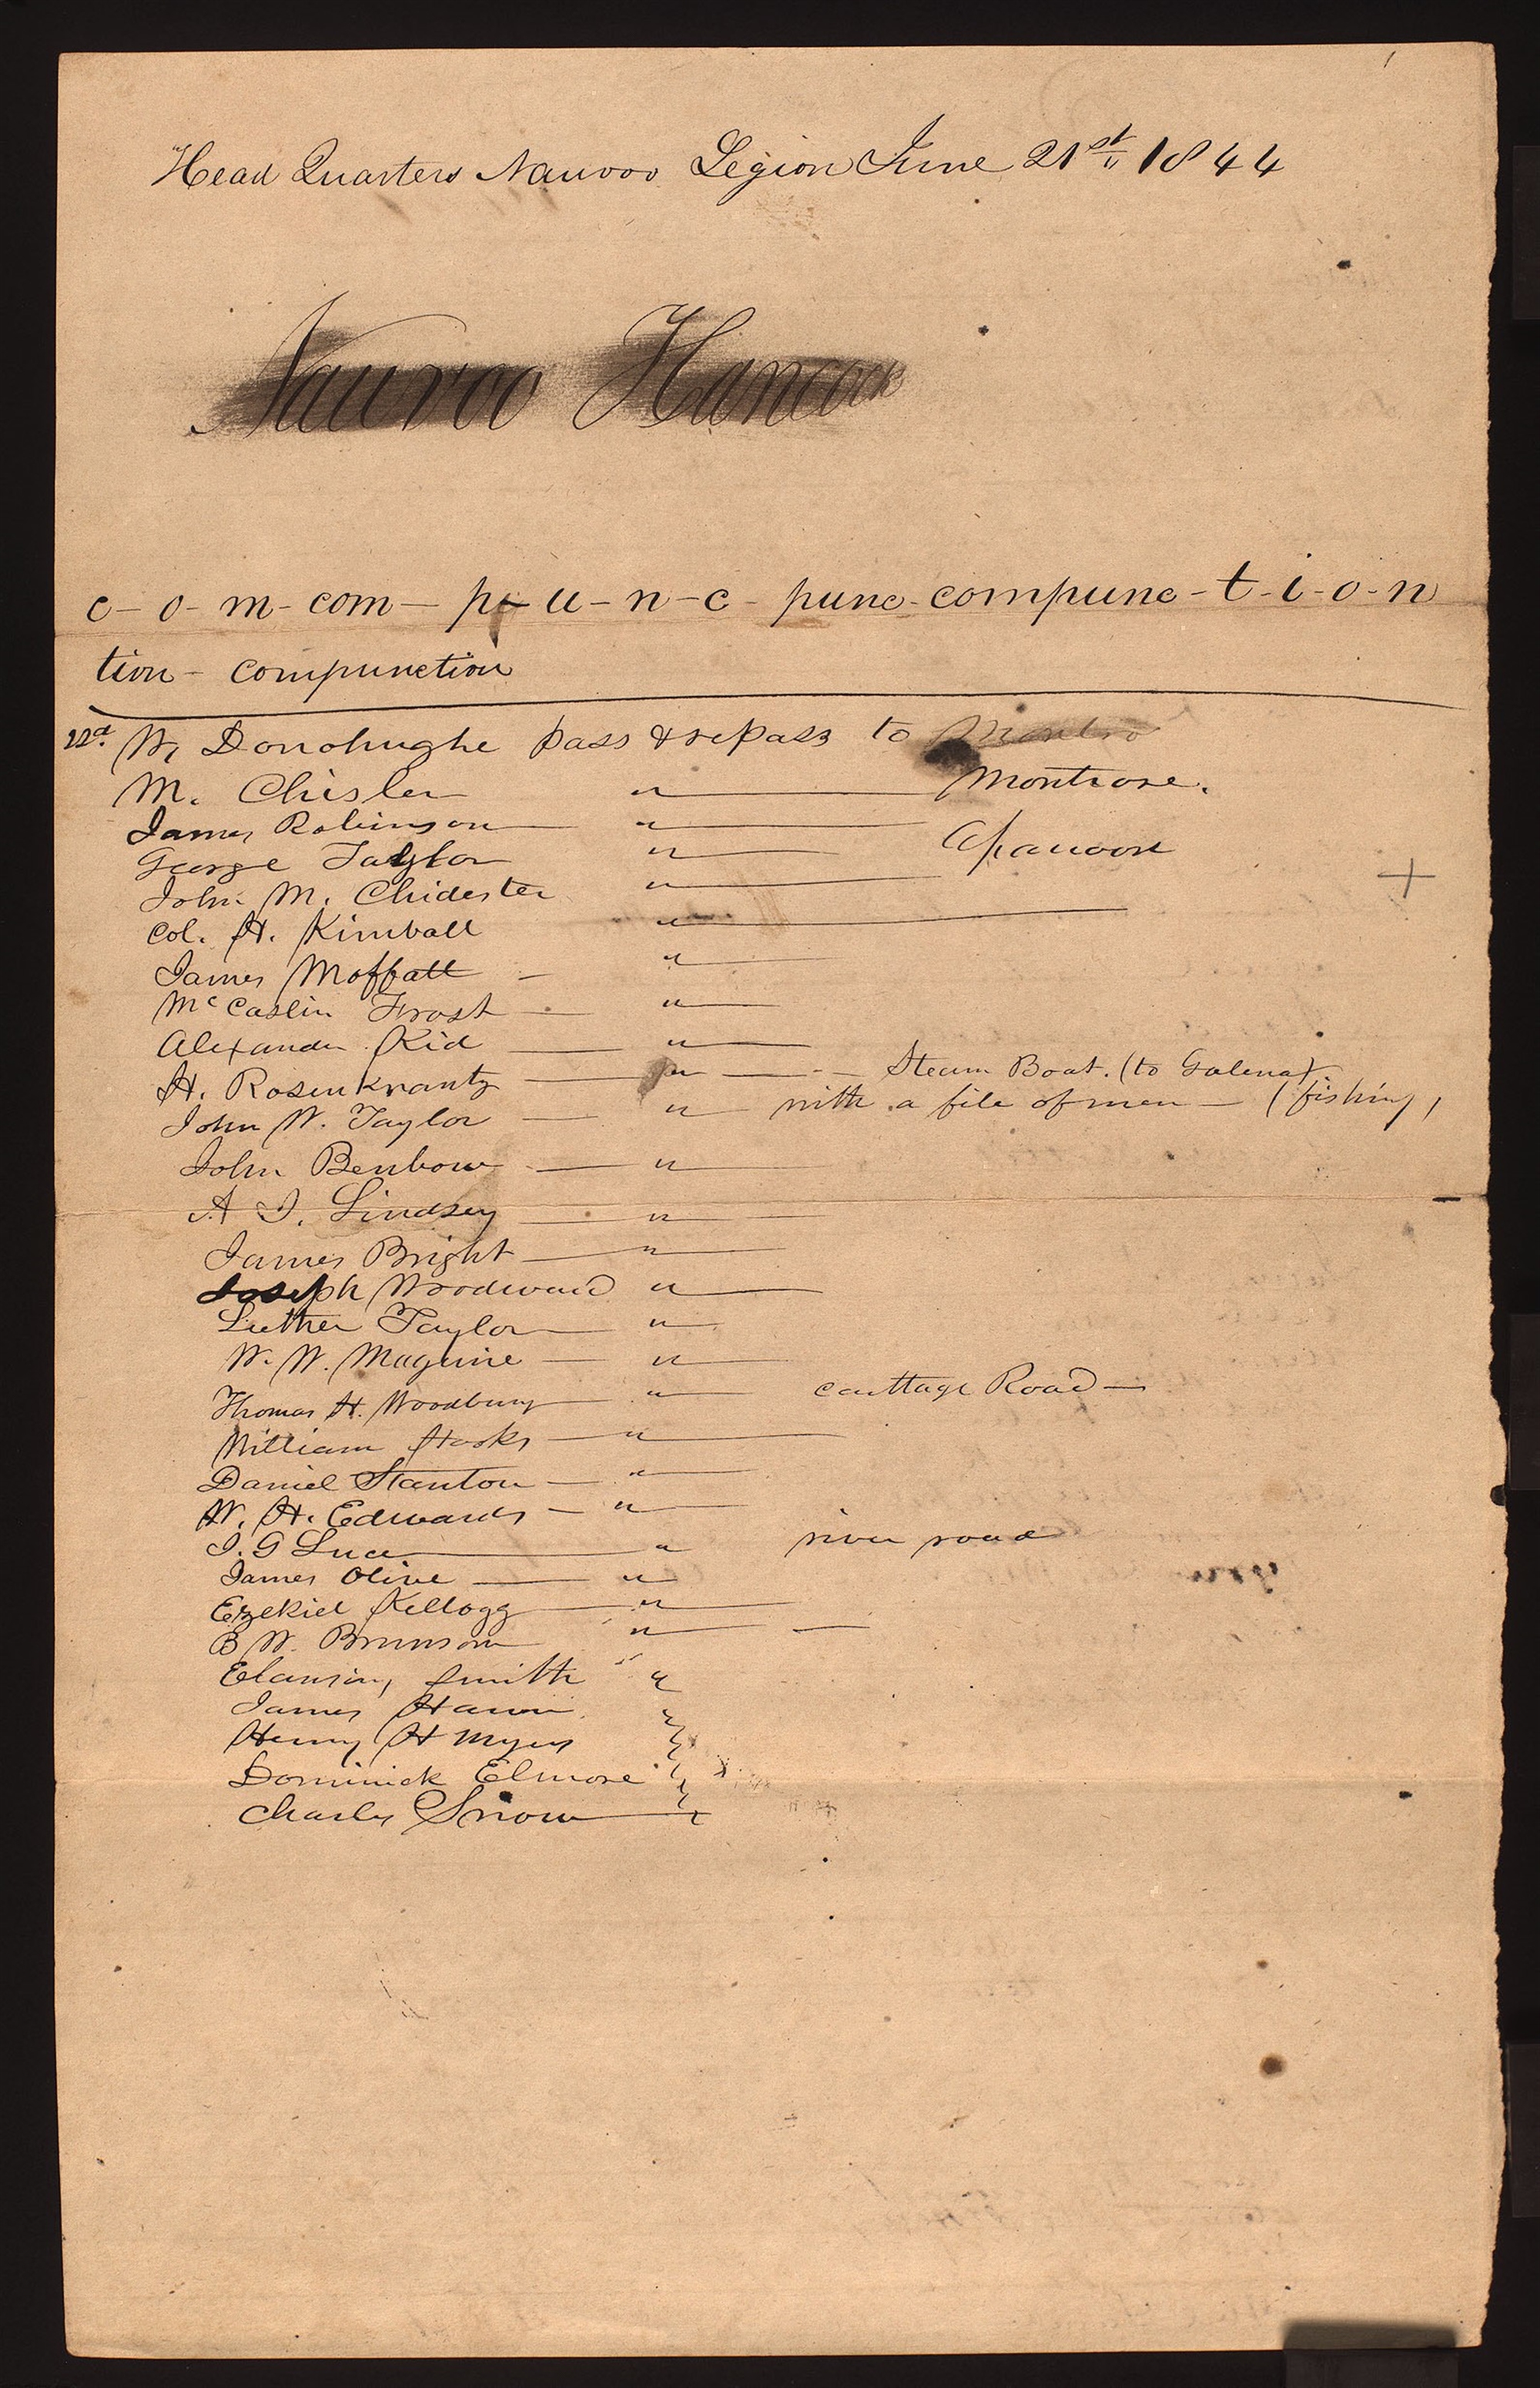 Head Quarters Nauvoo Legion June 21st 1844
Nauvoo Hancock
c-o-m-com-p-u-n-c-punc-compunc-t-i-o-n
tion-compunction
22d. W, Donohughe pass & repass to Montro
M. Chisler " Montrose.
James Robinson "
George Taylor " Apanoose
John M. Chidester "
Col. H. Kimball "
James Moffatt - "
McCaslin Frost - "
Alexander Kid "
H. Rosenkrantz " Steam Boat. (to Galena)
John W. Taylor " with a file of men - (fishing,
John Benbow "
A J. Lindsey "
James Bright "
Joseph Woodward "
Luther Taylor "
W. W. Maguire "
Thomas H. Woodbury " Carttage Road
William Hooks "
Daniel Stanton "
W. H. Edwards "
J. G Luce " river road
James Olive "
Ezekiel Kellogg "
B W. Brunson "
Elansing Smith "
James
Henry H Myers
Dominick Elmore
Charles Snow